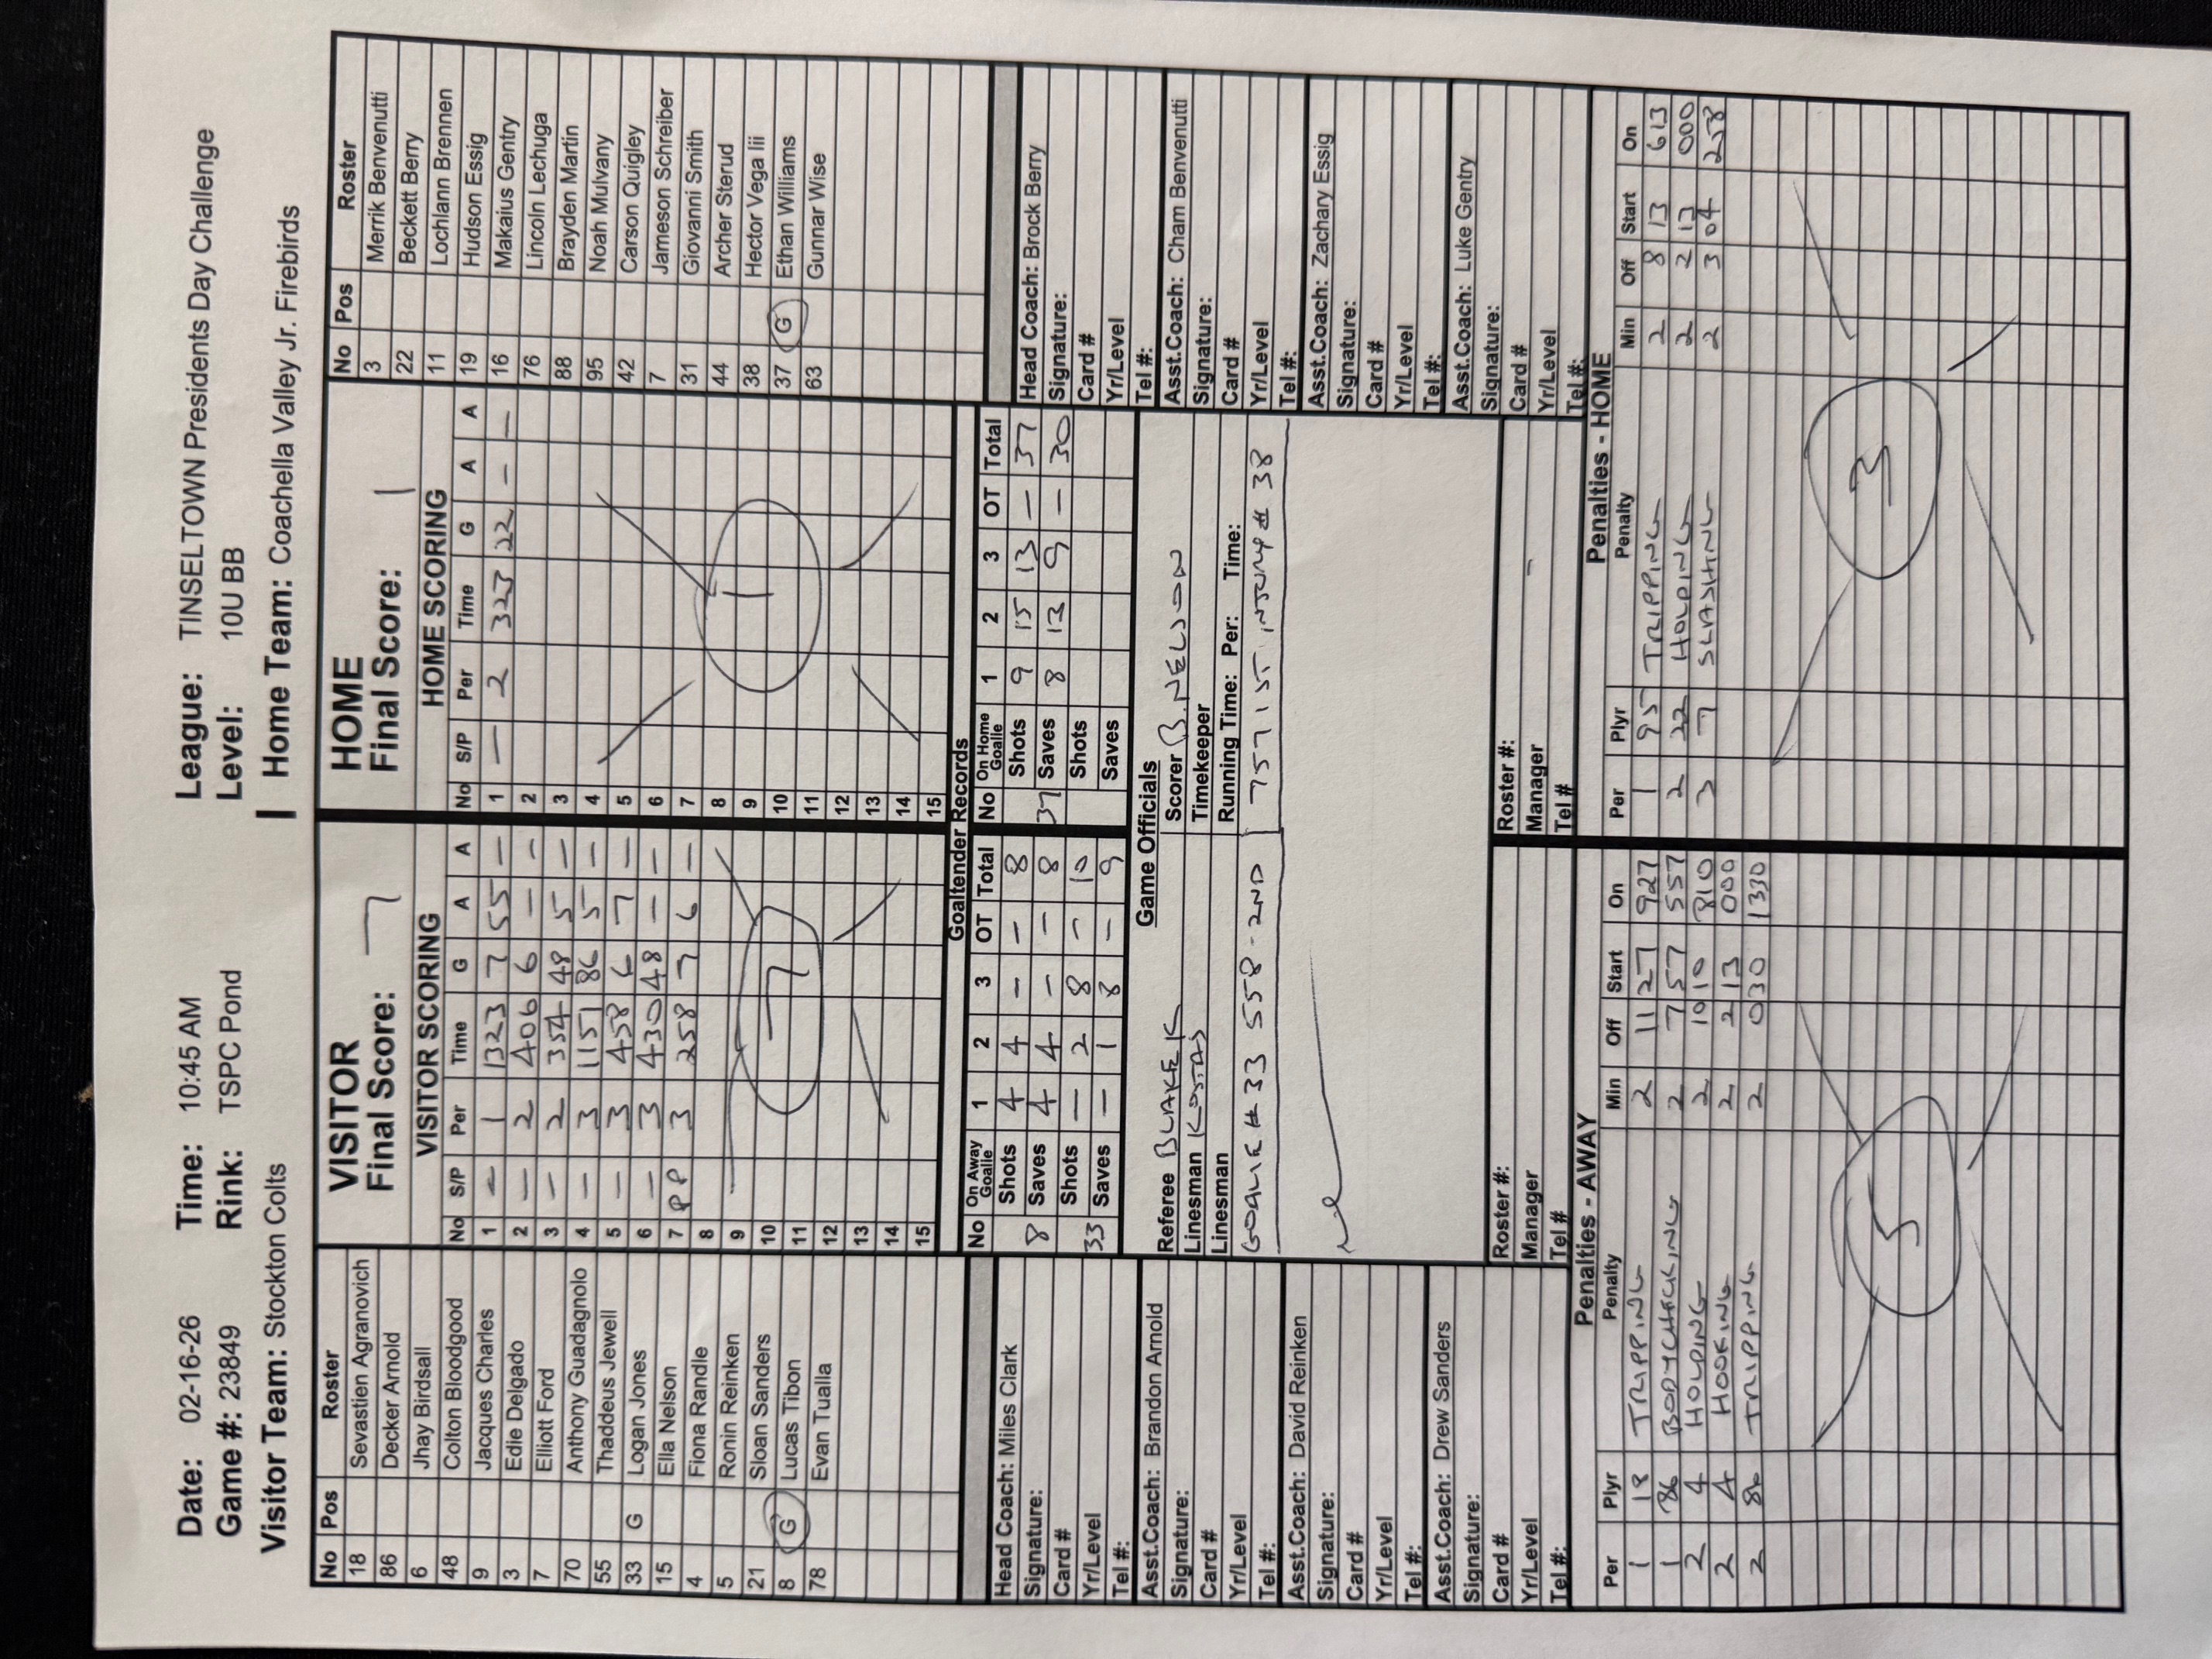 Date: 02-16-26 Time: 10:45 AM League: TINSELTOWN Presidents Day Challenge
Game #: 23849 Rink: TSPC Pond Level: 10U BB
Visitor Team: Stockton Colts Home Team: Coachella Valley Jr. Firebirds
No Pos Roster
18 Sevastien Agranovich
86 Decker Arnold
6 Jhay Birdsall
48 Colton Bloodgood
9 Jacques Charles
3 Edie Delgado
7 Elliott Ford
70 Anthony Guadagnolo
55 Thaddeus Jewell
33 G Logan Jones
15 Ella Nelson
4 Fiona Randle
5 Ronin Reinken
21 Sloan Sanders
8 G Lucas Tibon
78 Evan Tualla
VISITOR
Final Score: 7
VISITOR SCORING
No S/P Per Time G A A
1 — 1 1323 7 55 —
2 — 2 406 6 — —
3 — 2 354 48 5 —
4 — 3 1151 86 5 —
5 — 3 458 6 7 —
6 — 3 430 48 — —
7 PP 3 258 7 6 —
8
9
10
11
12
13
14
15
7
HOME
Final Score: 1
HOME SCORING
No S/P Per Time G A A
1 — 2 323 22 — —
2
3
4
5
6
7
8
9
10
11
12
13
14
15
1
No Pos Roster
3 Merrik Benvenutti
22 Beckett Berry
11 Lochlann Brennen
19 Hudson Essig
16 Makaius Gentry
76 Lincoln Lechuga
88 Brayden Martin
95 Noah Mulvany
42 Carson Quigley
7 Jameson Schreiber
31 Giovanni Smith
44 Archer Sterud
38 Hector Vega Iii
37 G Ethan Williams
63 Gunnar Wise
Goaltender Records
No On Away Goalie 1 2 3 OT Total
8 Shots 4 4 — — 8
Saves 4 4 — — 8
33 Shots — 2 8 — 10
Saves — 1 8 — 9
No On Home Goalie 1 2 3 OT Total
37 Shots 9 15 13 — 37
Saves 8 13 9 — 30
Shots
Saves
Head Coach: Miles Clark
Signature:
Card #
Yr/Level
Tel #:
Asst.Coach: Brandon Arnold
Signature:
Card #
Yr/Level
Tel #:
Asst.Coach: David Reinken
Signature:
Card #
Yr/Level
Tel #:
Asst.Coach: Drew Sanders
Signature:
Card #
Yr/Level
Tel #:
Game Officials
Referee BLAKE K Scorer B. NELSON
Linesman KOSTAS Timekeeper
Linesman Running Time: Per: Time:
GOALIE # 33 558 - 2ND 757 1ST INJURY # 38
Roster #: Roster #:
Manager Manager
Tel # Tel #
Head Coach: Brock Berry
Signature:
Card #
Yr/Level
Tel #:
Asst.Coach: Cham Benvenutti
Signature:
Card #
Yr/Level
Tel #:
Asst.Coach: Zachary Essig
Signature:
Card #
Yr/Level
Tel #:
Asst.Coach: Luke Gentry
Signature:
Card #
Yr/Level
Tel #:
Penalties - AWAY
Per Plyr Penalty Min Off Start On
1 18 TRIPPING 2 11 27 927
1 86 BODYCHECKING 2 7 57 557
2 4 HOLDING 2 10 10 810
2 4 HOOKING 2 2 13 000
2 86 TRIPPING 2 0 30 1330
5
Penalties - HOME
Per Plyr Penalty Min Off Start On
1 95 TRIPPING 2 8 13 613
2 22 HOLDING 2 2 13 000
3 7 SLASHING 2 3 04 258
3